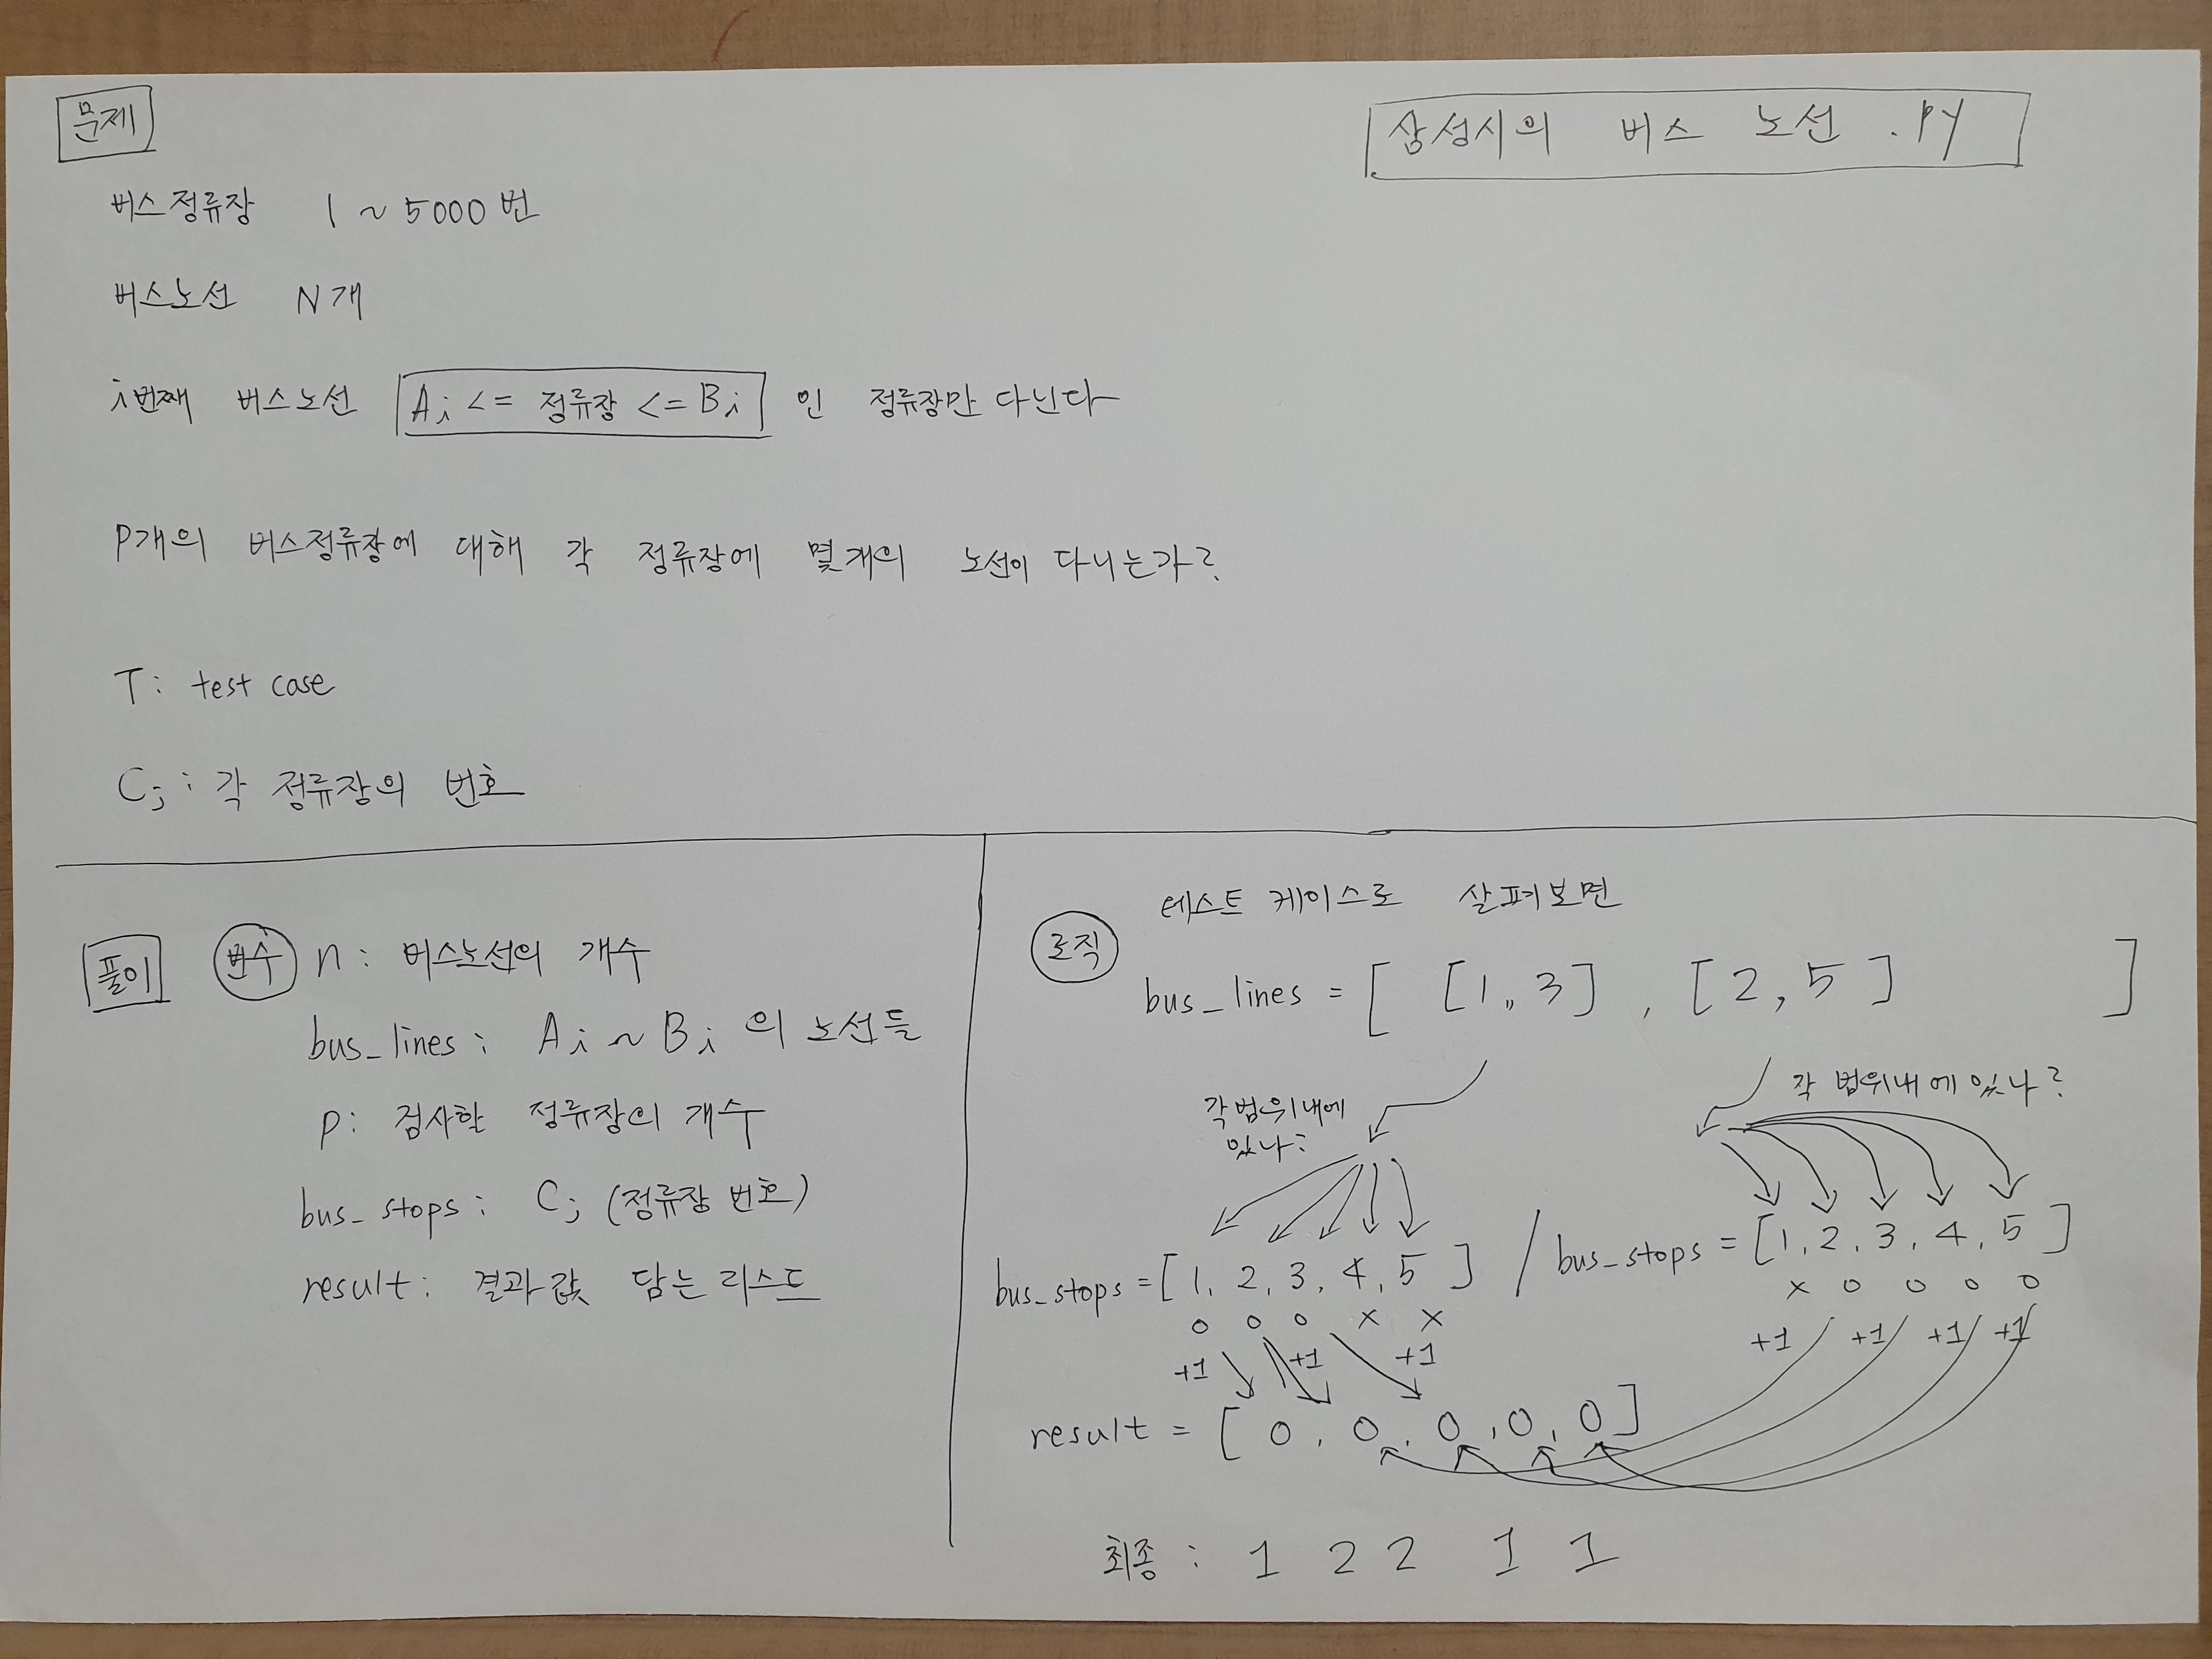 문제
삼성시의 버스 노선 .py
버스정류장 1 ~ 5000번
버스노선 N개
i번째 버스노선 Ai <= 정류장 <= Bi 인 정류장만 다닌다
P개의 버스정류장에 대해 각 정류장에 몇개의 노선이 다니는가?
T : test case
Cj : 각 정류장의 번호
풀이
변수 n : 버스노선의 개수
bus_lines : Ai ~ Bi 의 노선들
p : 검사할 정류장의 개수
bus_stops : Cj (정류장 번호)
result : 결과값 담는 리스트
테스트 케이스로 살펴보면
로직
bus_lines = [ [1, 3] , [2, 5] ]
각 범위내에
있나?
각 범위내에 있나?
bus_stops = [1, 2, 3, 4, 5] / bus_stops = [1, 2, 3, 4, 5]
o o o x x x o o o o
+1 +1 +1 +1 +1 +1 +1
result = [ 0, 0, 0, 0, 0 ]
최종 : 1 2 2 1 1